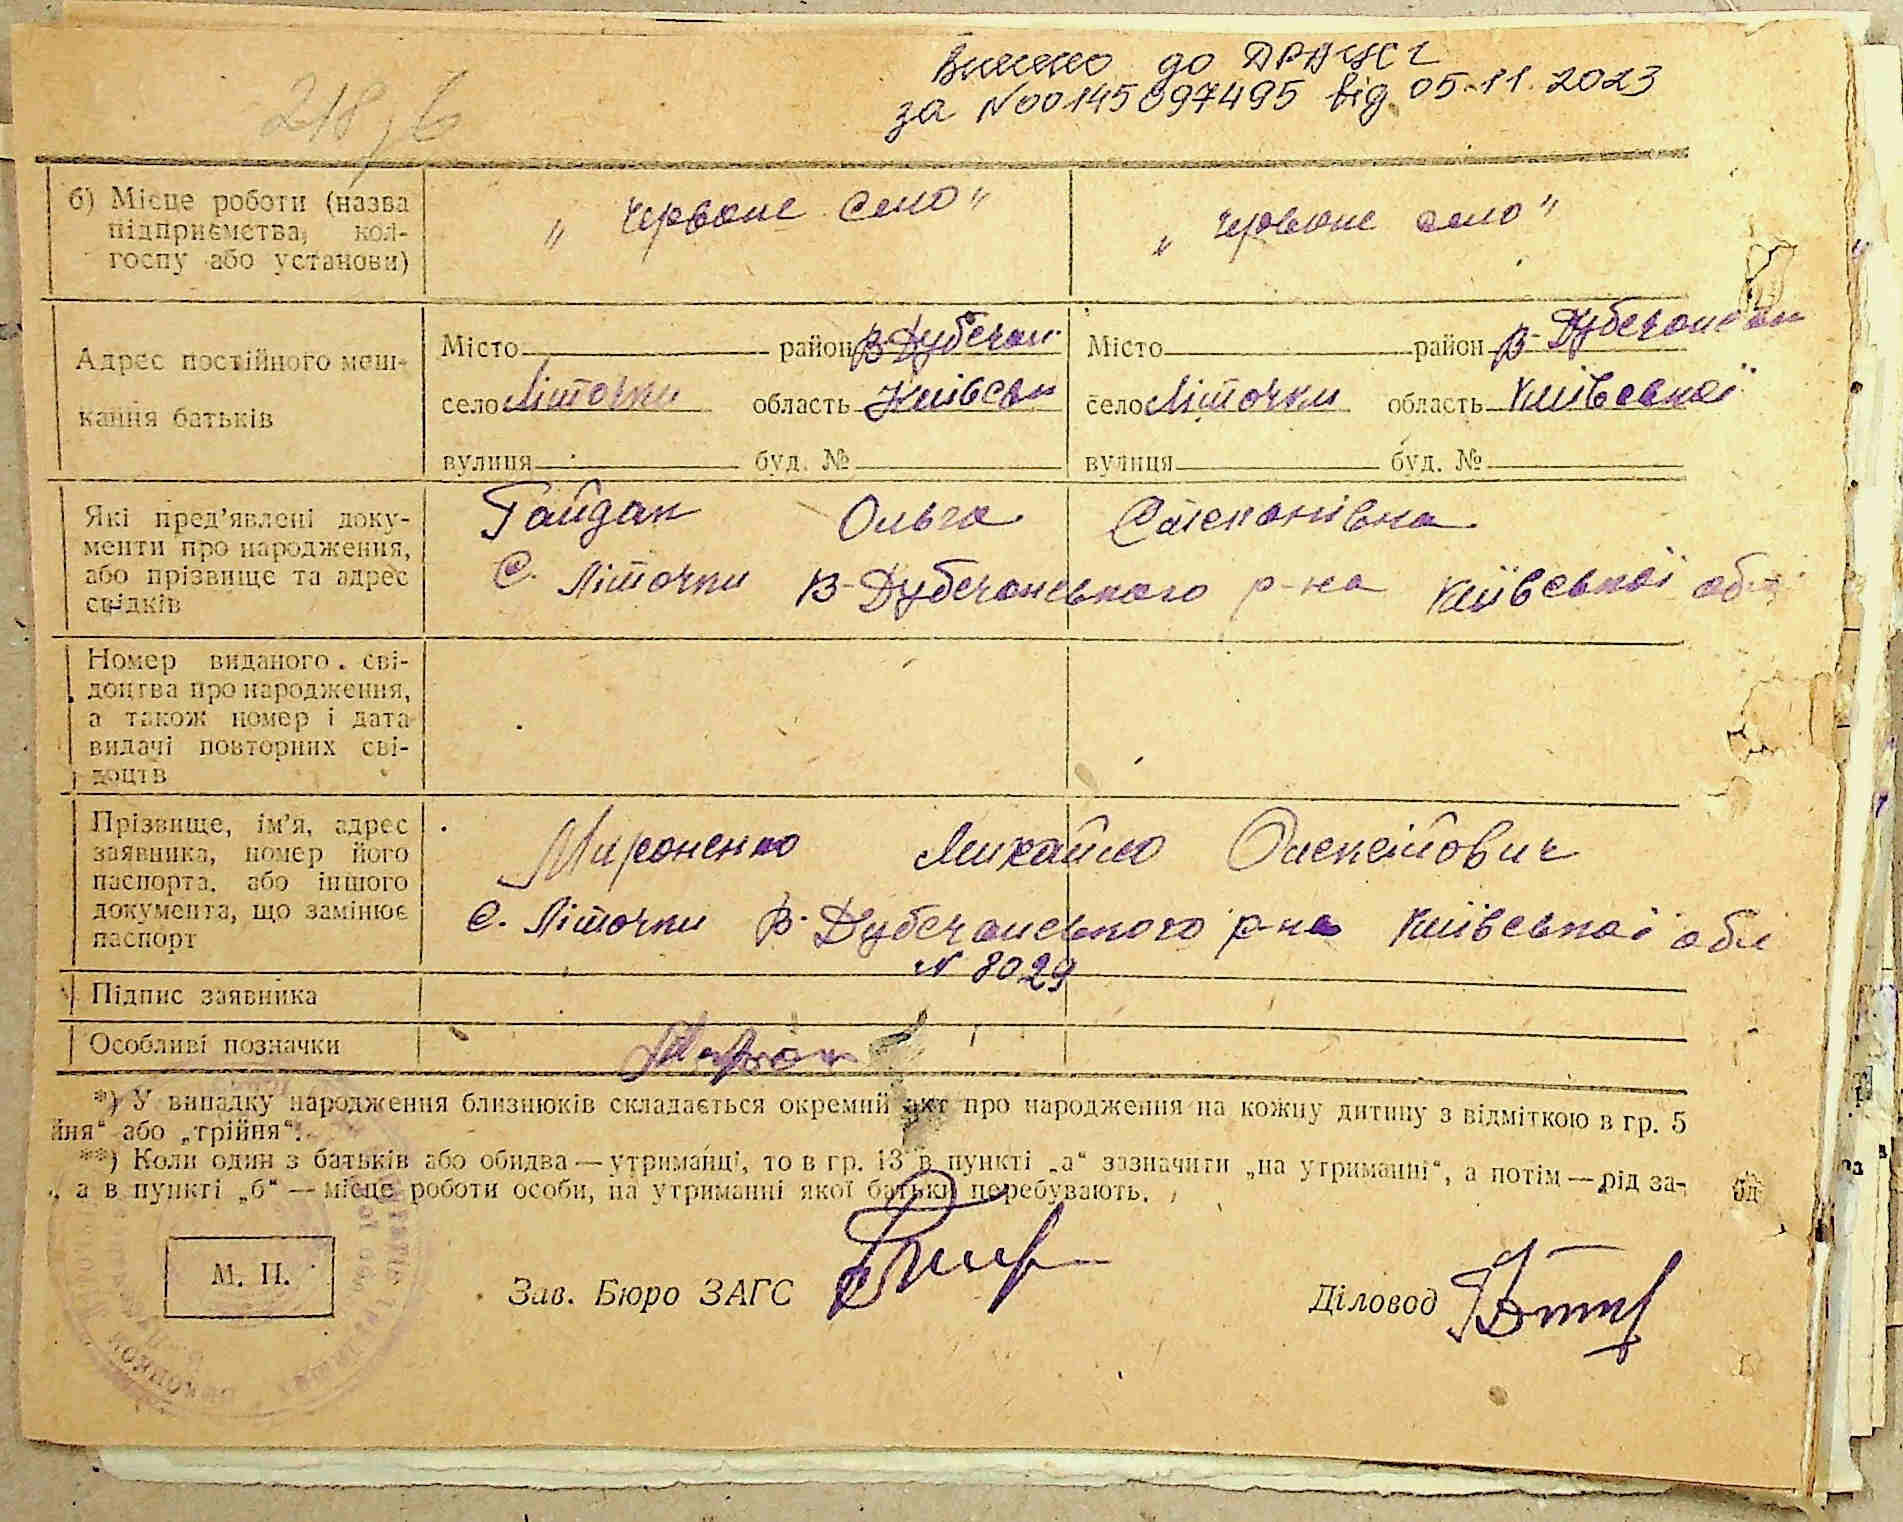 Внесено до ДРАЦСГ
за №00145097495 від 05.11.2023
218/6
б) Місце роботи (назва підприємства, кол-госпу або установи)
„ Червоне село"
„ Червоне село"
Адрес постійного меш-
кання батьків
Місто район В-Дубечан
село Літочки область Київськ
вулиця буд. №
Місто район В-Дубечанськ
село Літочки область Київської
вулиця буд. №
Які пред'явлені доку-
менти про народження,
або прізвище та адрес
свідків
Гайдак Ольга Степанівна
С. Літочки В-Дубечанського р-на Київської обл
Номер виданого сві-
доцтва про народження,
а також номер і дата
видачі повторних сві-
доцтв
Прізвище, ім'я, адрес
заявника, номер його
паспорта, або іншого
документа, що замінює
паспорт
Мироненко Михайло Олексійович
С. Літочки В-Дубечанського р-на Київської обл
N 8029
Підпис заявника
Особливі позначки
*) У випадку народження близнюків складається окремий акт про народження на кожну дитину з відміткою в гр. 5
йня" або „трійня".
**) Коли один з батьків або обидва — утриманці, то в гр. 13 в пункті „а" зазначити „на утриманні", а потім — рід за-
, а в пункті „б" — місце роботи особи, на утриманні якої батьки перебувають.
М. П.
Зав. Бюро ЗАГС
Діловод